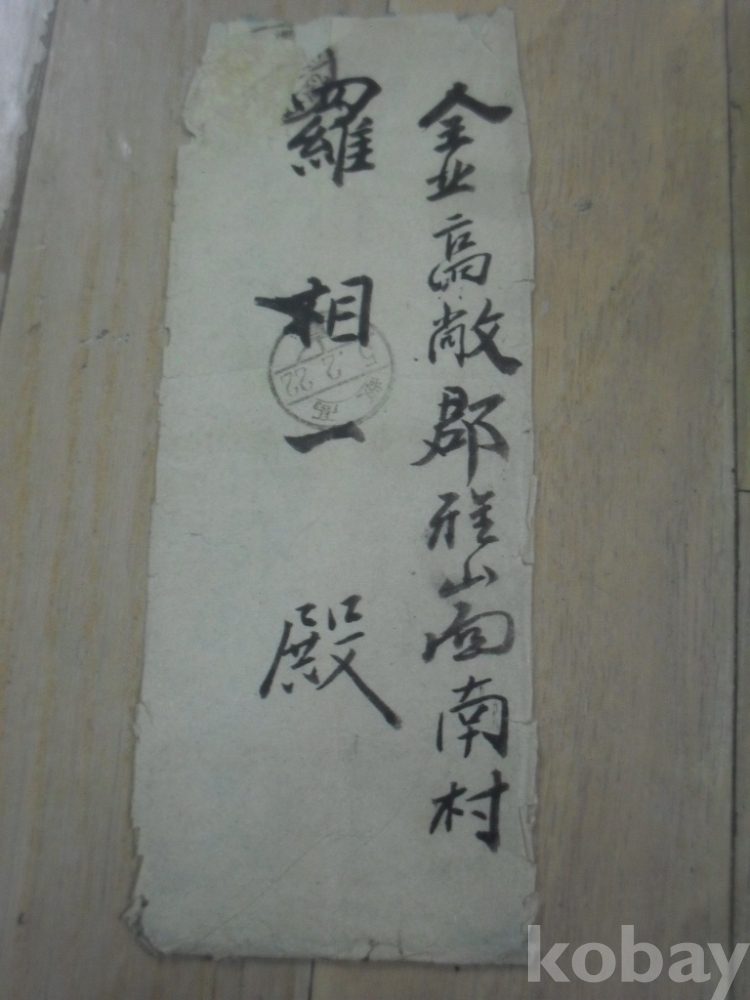 全北高敞郡雅山面南村
羅相一殿
2.22
kobay